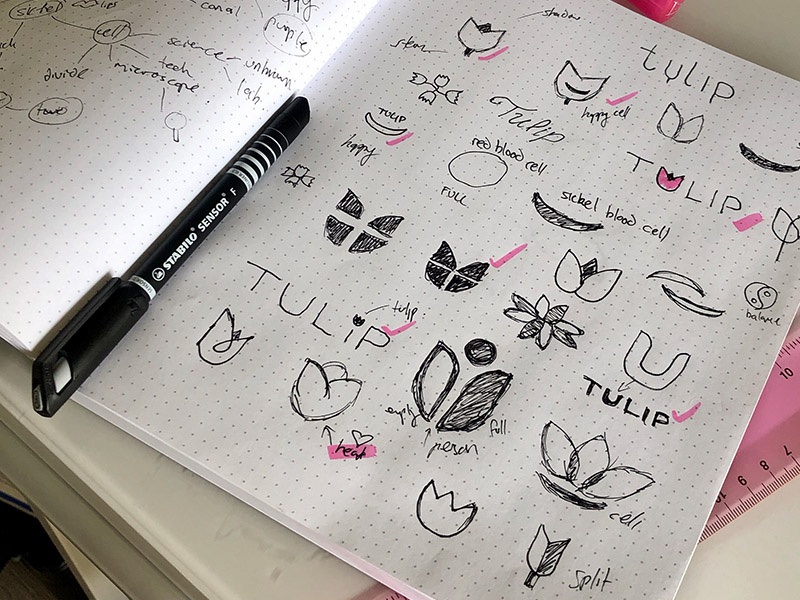 sickel
lips
cell
canal
purple
science
unknown
tech
lab
divide
microscope
STABILO SENSOR F
shadow
stem
TULIP
happy cell
Tulip
TULIP
happy
red blood cell
FULL
TULIP
sickel blood cell
balance
TULIP
tulip
TULIP
empty
full
person
heart
cell
split
10
10
8
7